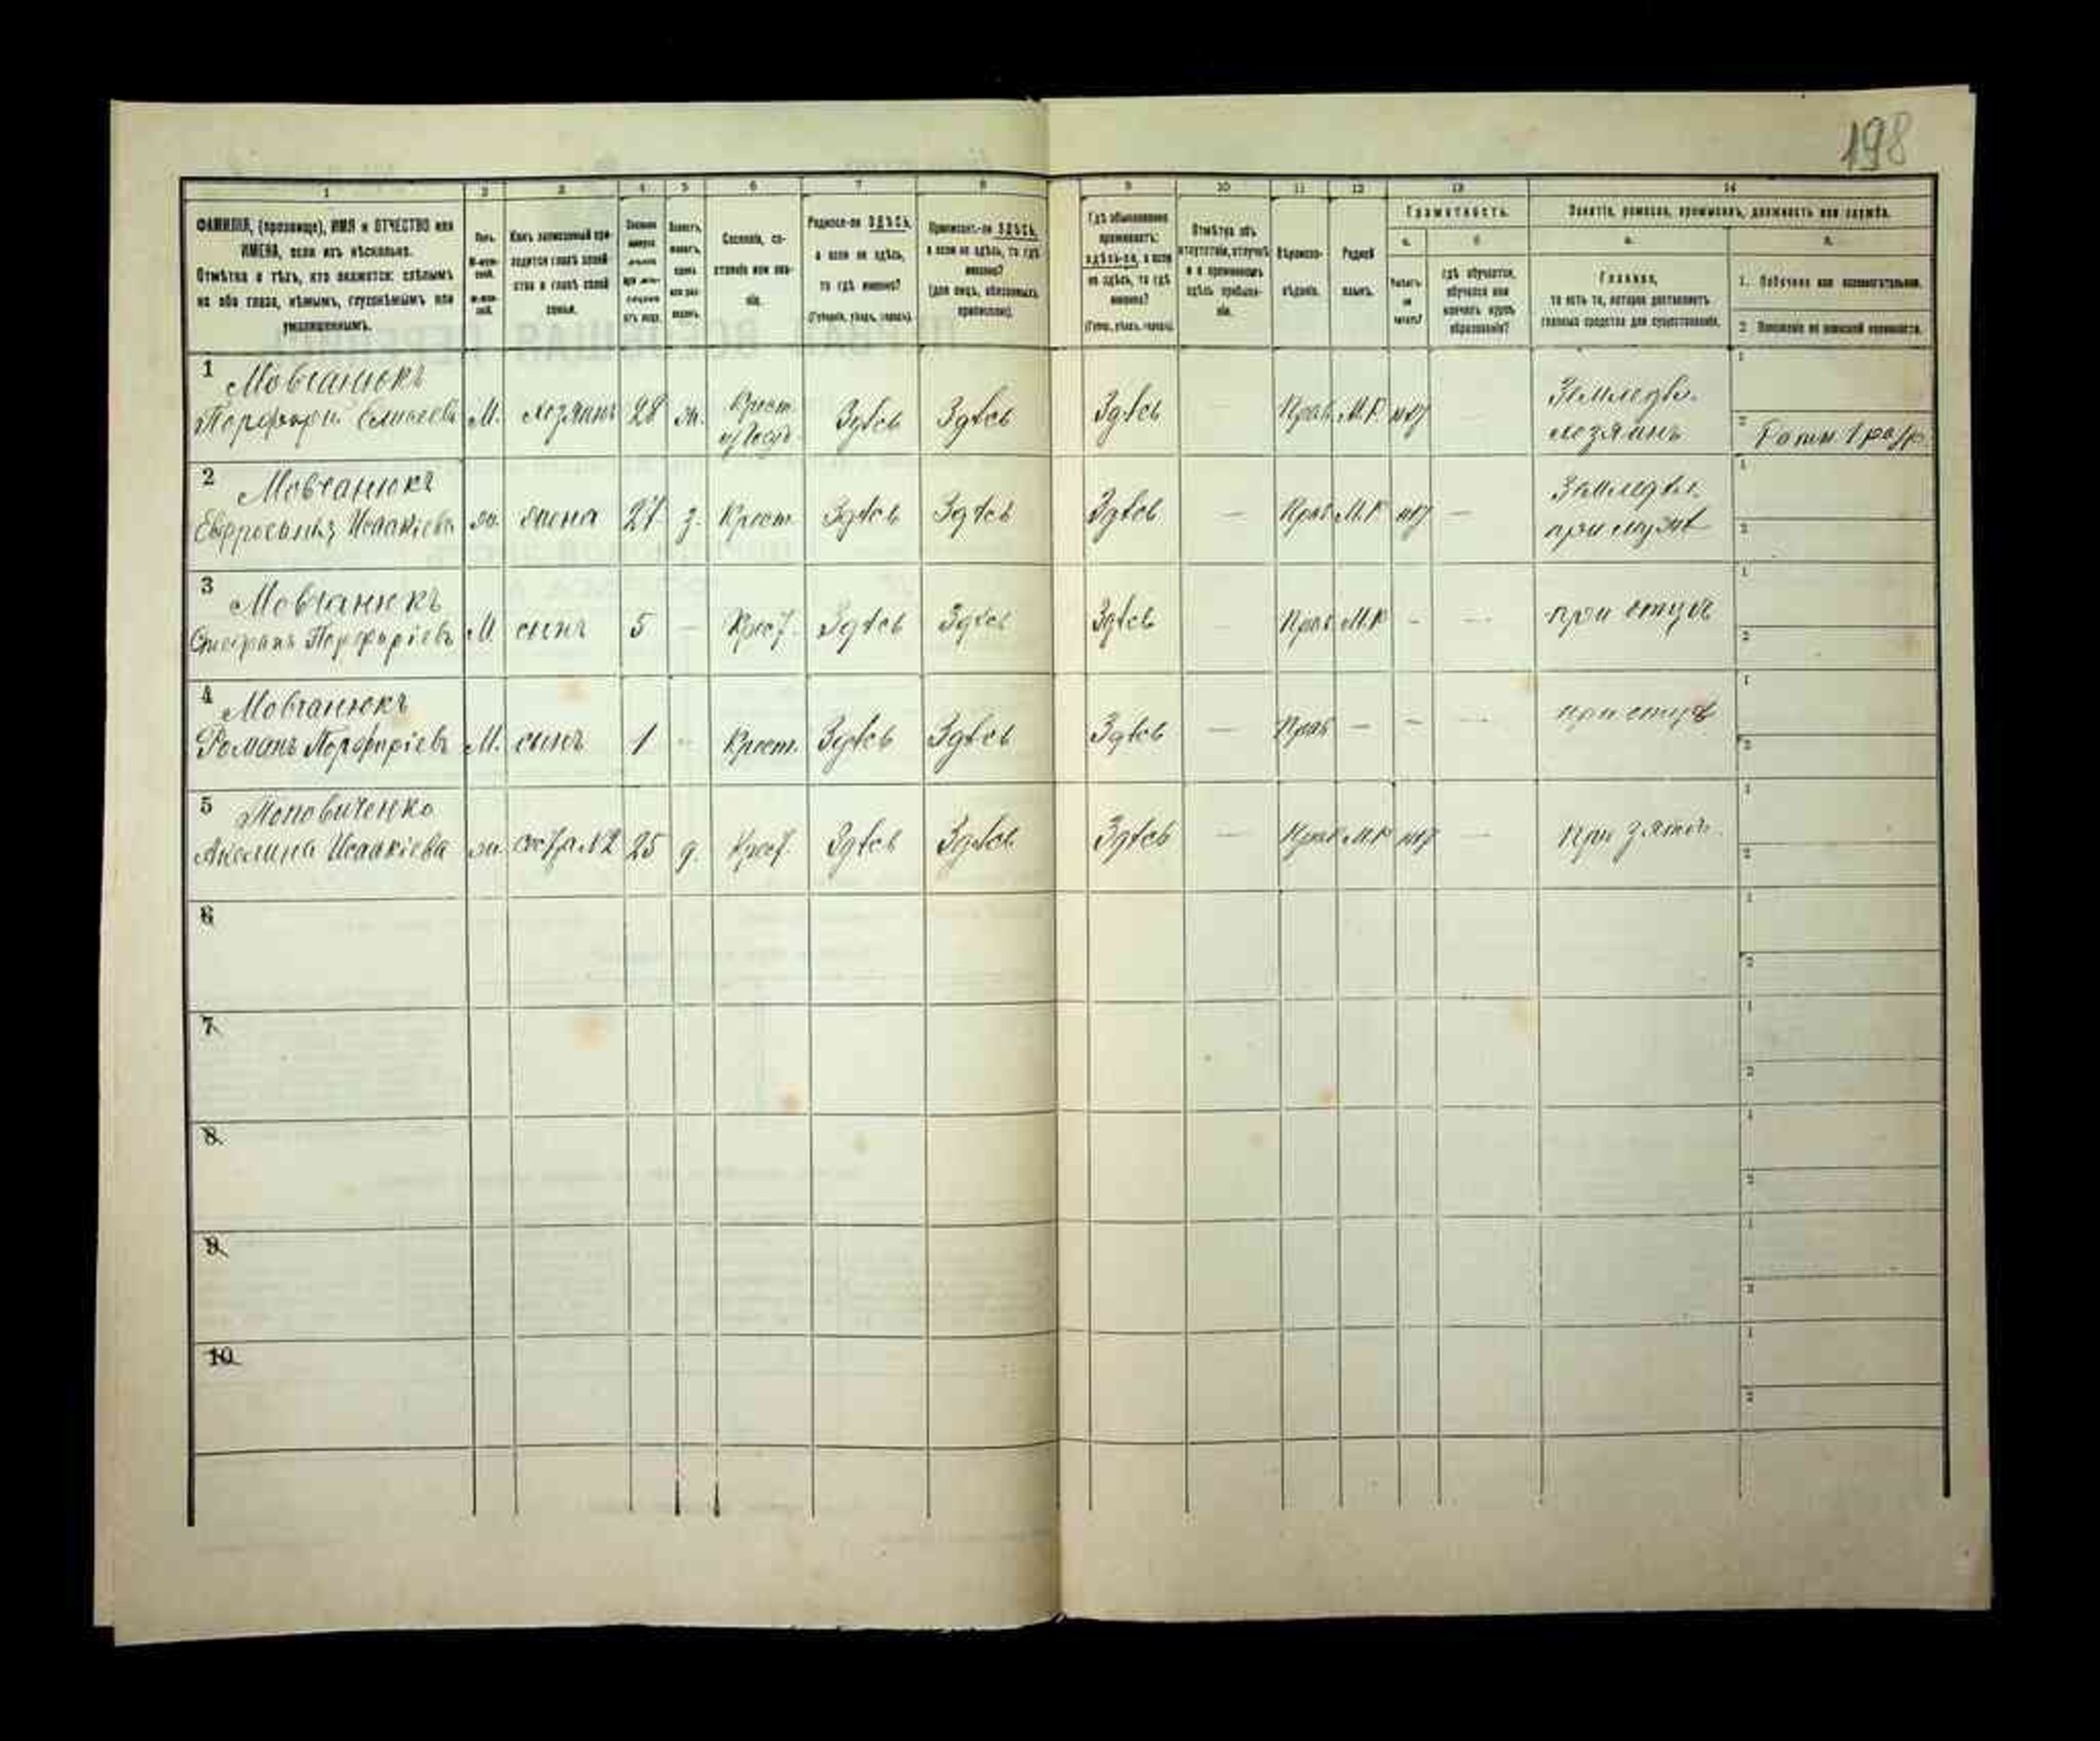 198
1 2 3 4 5 6 7 8 9 10 11 12 13 14
ФАМИЛІЯ, (прозвище), ИМЯ и ОТЧЕСТВО или
ИМЕНА, если ихъ нѣсколько.
Отмѣтка о тѣхъ, кто окажется: слѣпымъ
на оба глаза, нѣмымъ, глухонѣмымъ или
умалишеннымъ.
Полъ.
Какъ записанный при-
ходится главѣ хозяй-
ства и главѣ своей
семьи.
Сословіе, со-
стояніе или зва-
ніе.
Родился-ли ЗДѢСЬ,
а если не здѣсь,
то гдѣ именно?
(Губернія, уѣздъ, городъ).
Приписанъ-ли ЗДѢСЬ,
а если не здѣсь, то гдѣ
именно?
(для лицъ, обязанныхъ
припискою).
Гдѣ обыкновенно
проживаетъ:
здѣсь-ли, а если
не здѣсь, то гдѣ
именно?
(Губер., уѣздъ, городъ).
Отмѣтка объ
отсутствіи, отлучкѣ
и о временномъ
здѣсь пребыва-
ніи.
Вѣроиспо-
вѣданіе.
Родной
языкъ.
Грамотность.
а. б.
Умѣетъ-
ли
читать?
гдѣ обучается,
обучался или
кончилъ курсъ
образованія?
Занятіе, ремесло, промыселъ, должность или служба.
а. б.
Главное,
то есть то, которое доставляетъ
главныя средства для существованія.
1. Побочное или вспомогательное.
2. Положеніе по воинской повинности.
1 Мовчанюкъ
Порфирій Елисеевъ М. хозяинъ 28 ж. Крест. Здѣсь Здѣсь Здѣсь Прав. М.Р. нѣт Земледѣл. хозяинъ
Ратн. 1 разр
2 Мовчанюкъ
Евфросинія Исаакіева ж. жена 27 з. Крест. Здѣсь Здѣсь Здѣсь — Прав М.Р. нѣт — Земледѣл. при мужѣ
3 Мовчанюкъ
Стефанъ Порфиріевъ М сынъ 5 — Крест. Здѣсь Здѣсь Здѣсь Прав М.Р - — при отцѣ
4 Мовчанюкъ
Романъ Порфиріевъ М. сынъ 1 - Крест. Здѣсь Здѣсь Здѣсь — Прав — - — при отцѣ
5 Поповиченко
Акелина Исаакіева ж. сестра №2 25 д. Крест. Здѣсь Здѣсь Здѣсь — Прав М.Р нѣт — при зятѣ.
6
7
8
9
10